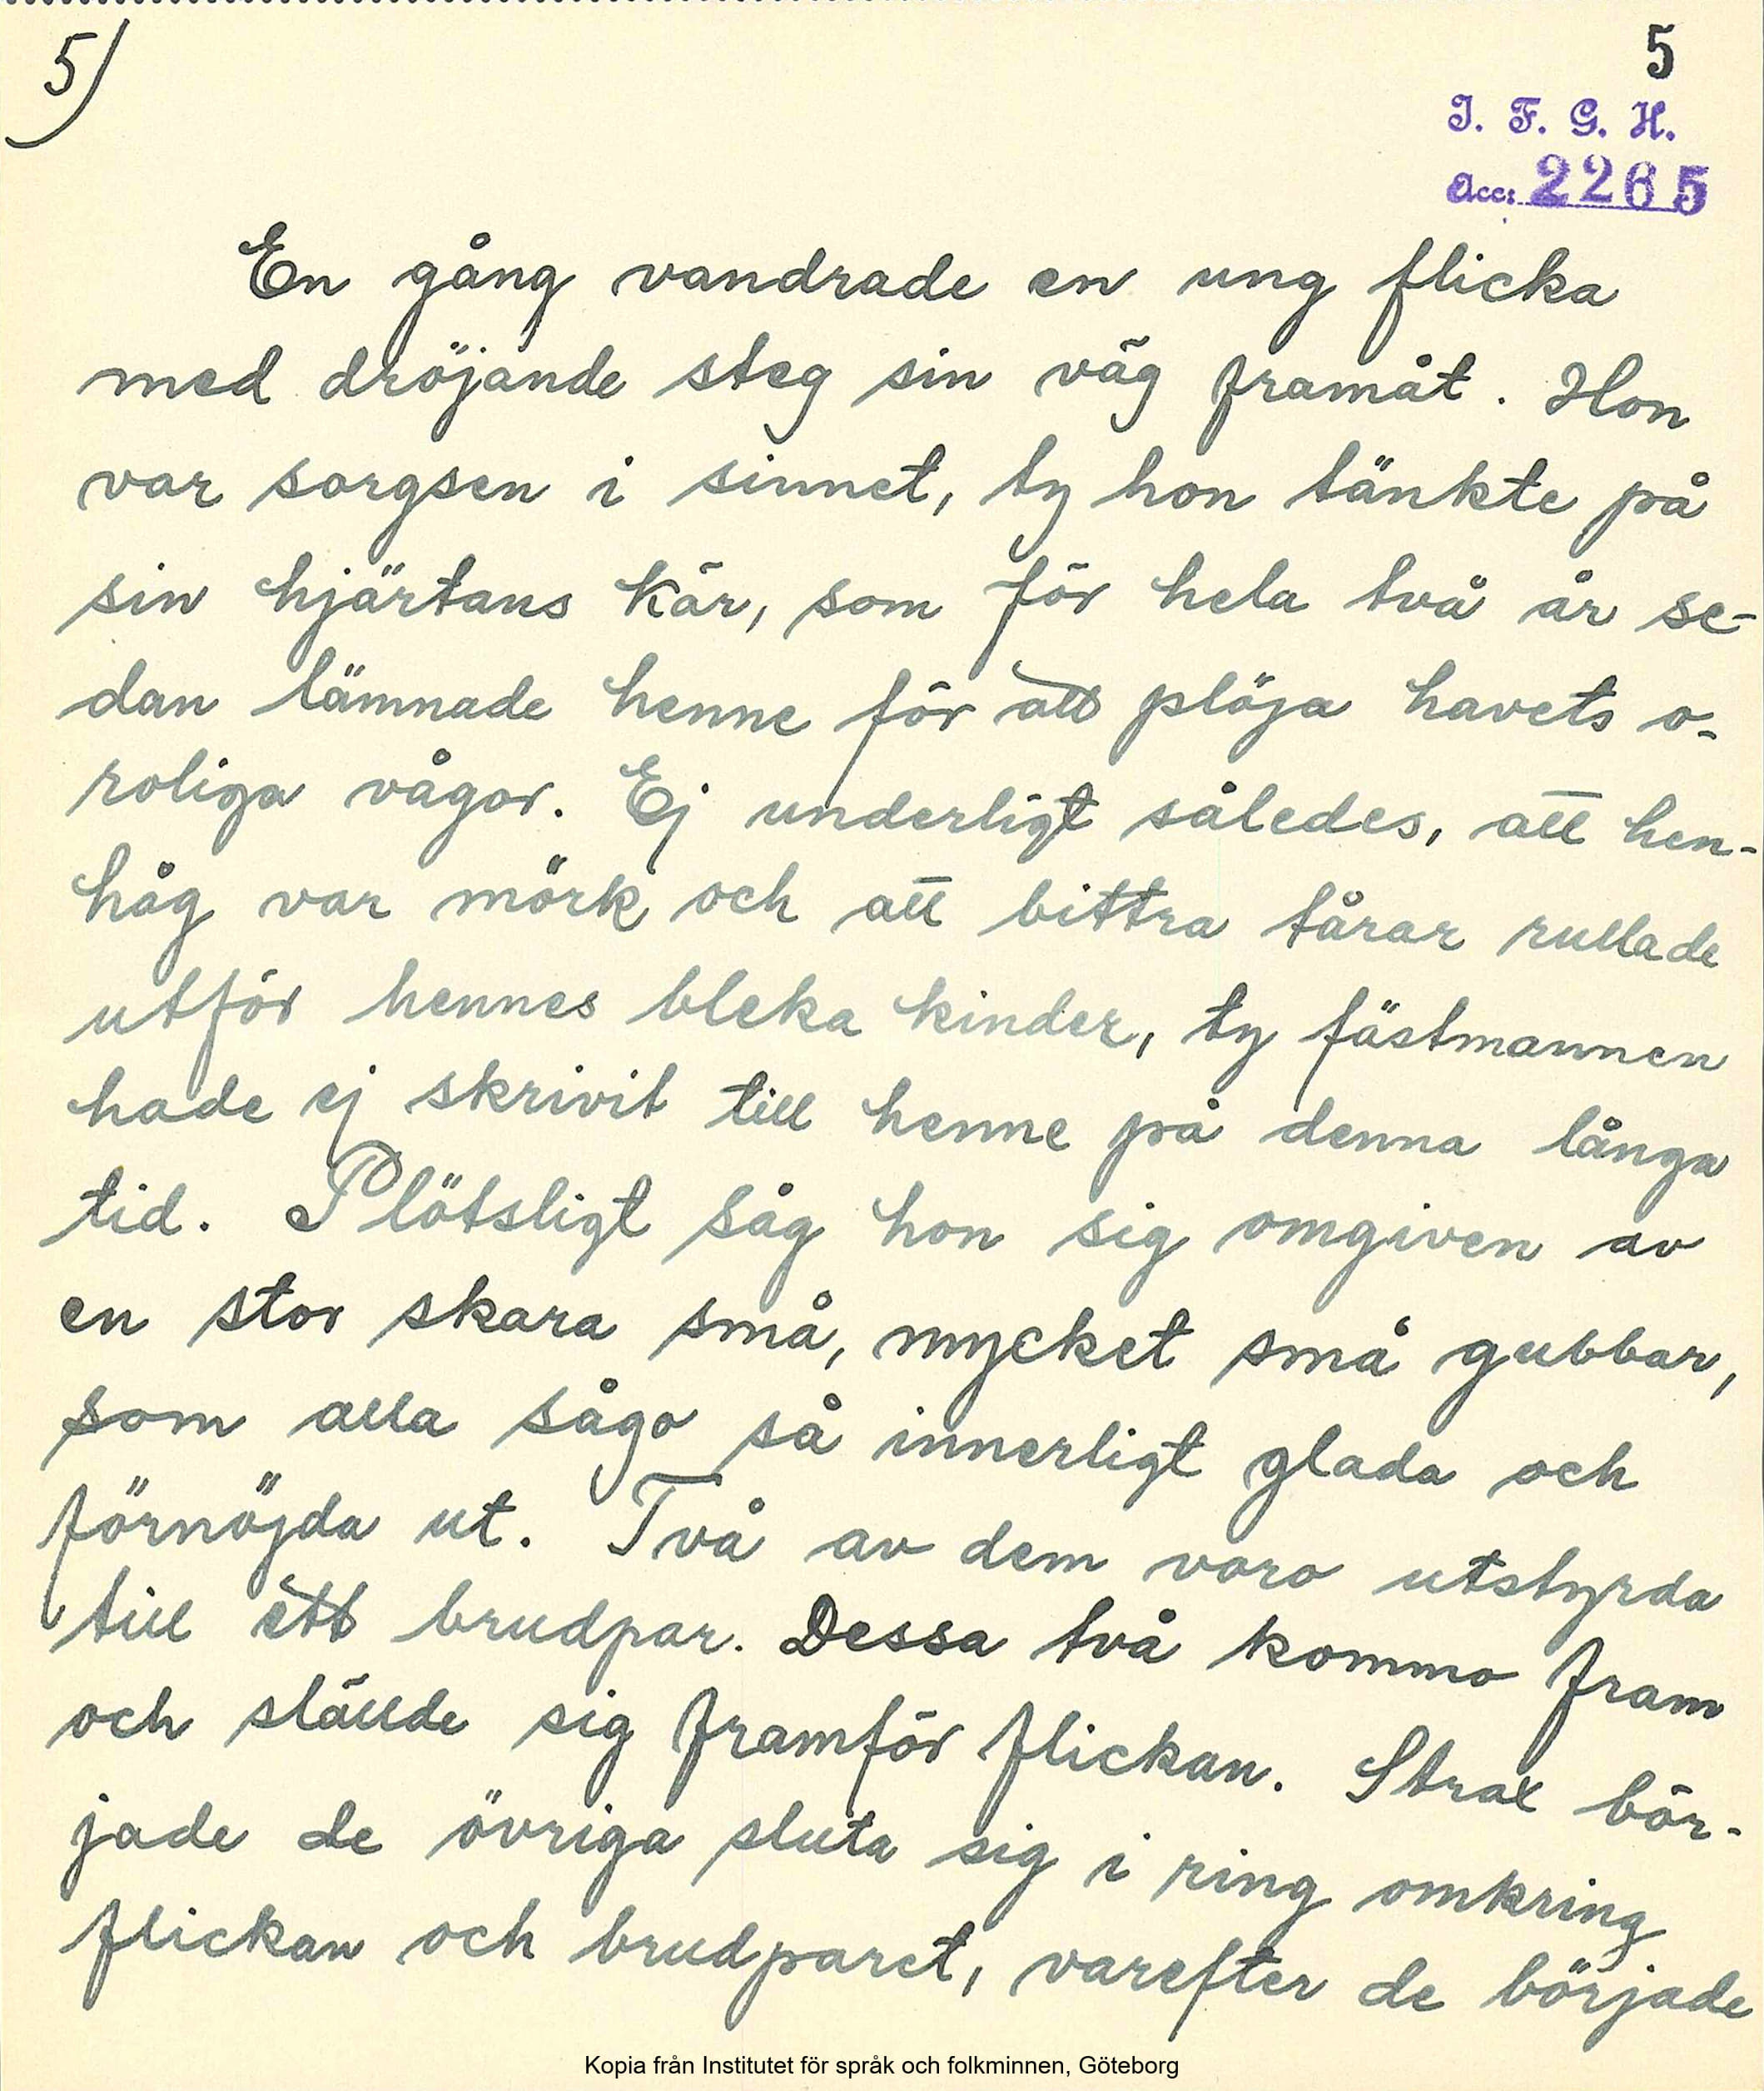 5)
5
I. F. G. H.
Acc: 2265
En gång vandrade en ung flicka
med dröjande steg sin väg framåt. Hon
var sorgsen i sinnet, ty hon tänkte på
sin hjärtans kär, som för hela två år se-
dan lämnade henne för att plöja havets o-
roliga vågor. Ej underligt således, att hen-
håg var mörk och att bittra tårar rullade
utför hennes bleka kinder, ty fästmannen
hade ej skrivit till henne på denna långa
tid. Plötsligt såg hon sig omgiven av
en stor skara små, mycket små gubbar,
som alla sågo så innerligt glada och
förnöjda ut. Två av dem voro utstyrda
till ett brudpar. Dessa två kommo fram
och ställde sig framför flickan. Strax bör-
jade de övriga sluta sig i ring omkring
flickan och brudparet, varefter de började
Kopia från Institutet för språk och folkminnen, Göteborg